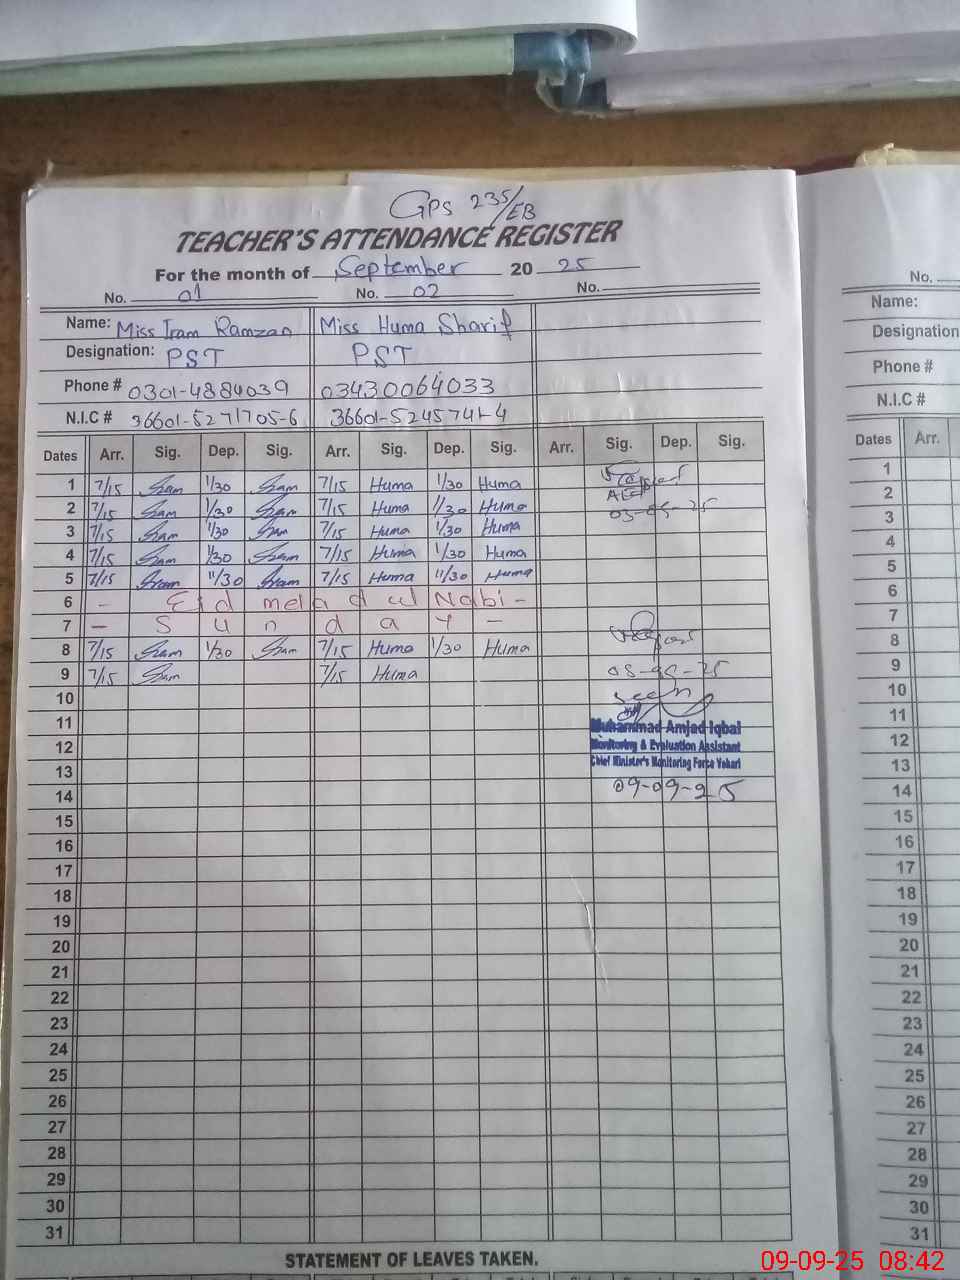 GPS 235/EB
TEACHER'S ATTENDANCE REGISTER
For the month of September 2025
No. 01 No. 02 No.
Name: Miss Iram Ramzan Miss Huma Sharif
Designation: PST PST
Phone # 0301-4884039 03430064033
N.I.C # 36601-5271705-6 36601-5245741-4
Dates Arr. Sig. Dep. Sig. Arr. Sig. Dep. Sig. Arr. Sig. Dep. Sig.
1 7/15 Iram 1/30 Iram 7/15 Huma 1/30 Huma
2 7/15 Iram 1/30 Iram 7/15 Huma 1/30 Huma
03-09-25
3 7/15 Iram 1/30 Iram 7/15 Huma 1/30 Huma
4 7/15 Iram 1/30 Iram 7/15 Huma 1/30 Huma
5 7/15 Iram 11/30 Iram 7/15 Huma 11/30 Huma
6 - Eid melad ul Nabi -
7 - Sunday -
8 7/15 Iram 1/30 Iram 7/15 Huma 1/30 Huma
9 7/15 Iram 7/15 Huma
10 Seen
11 Muhammad Amjad Iqbal
12 Monitoring & Evaluation Assistant
Chief Minister's Monitoring Force Vehari
13
14 09-09-25
15
16
17
18
19
20
21
22
23
24
25
26
27
28
29
30
31
STATEMENT OF LEAVES TAKEN.
No.
Name:
Designation
Phone #
N.I.C #
Dates Arr.
1
2
3
4
5
6
7
8
9
10
11
12
13
14
15
16
17
18
19
20
21
22
23
24
25
26
27
28
29
30
31
09-09-25 08:42